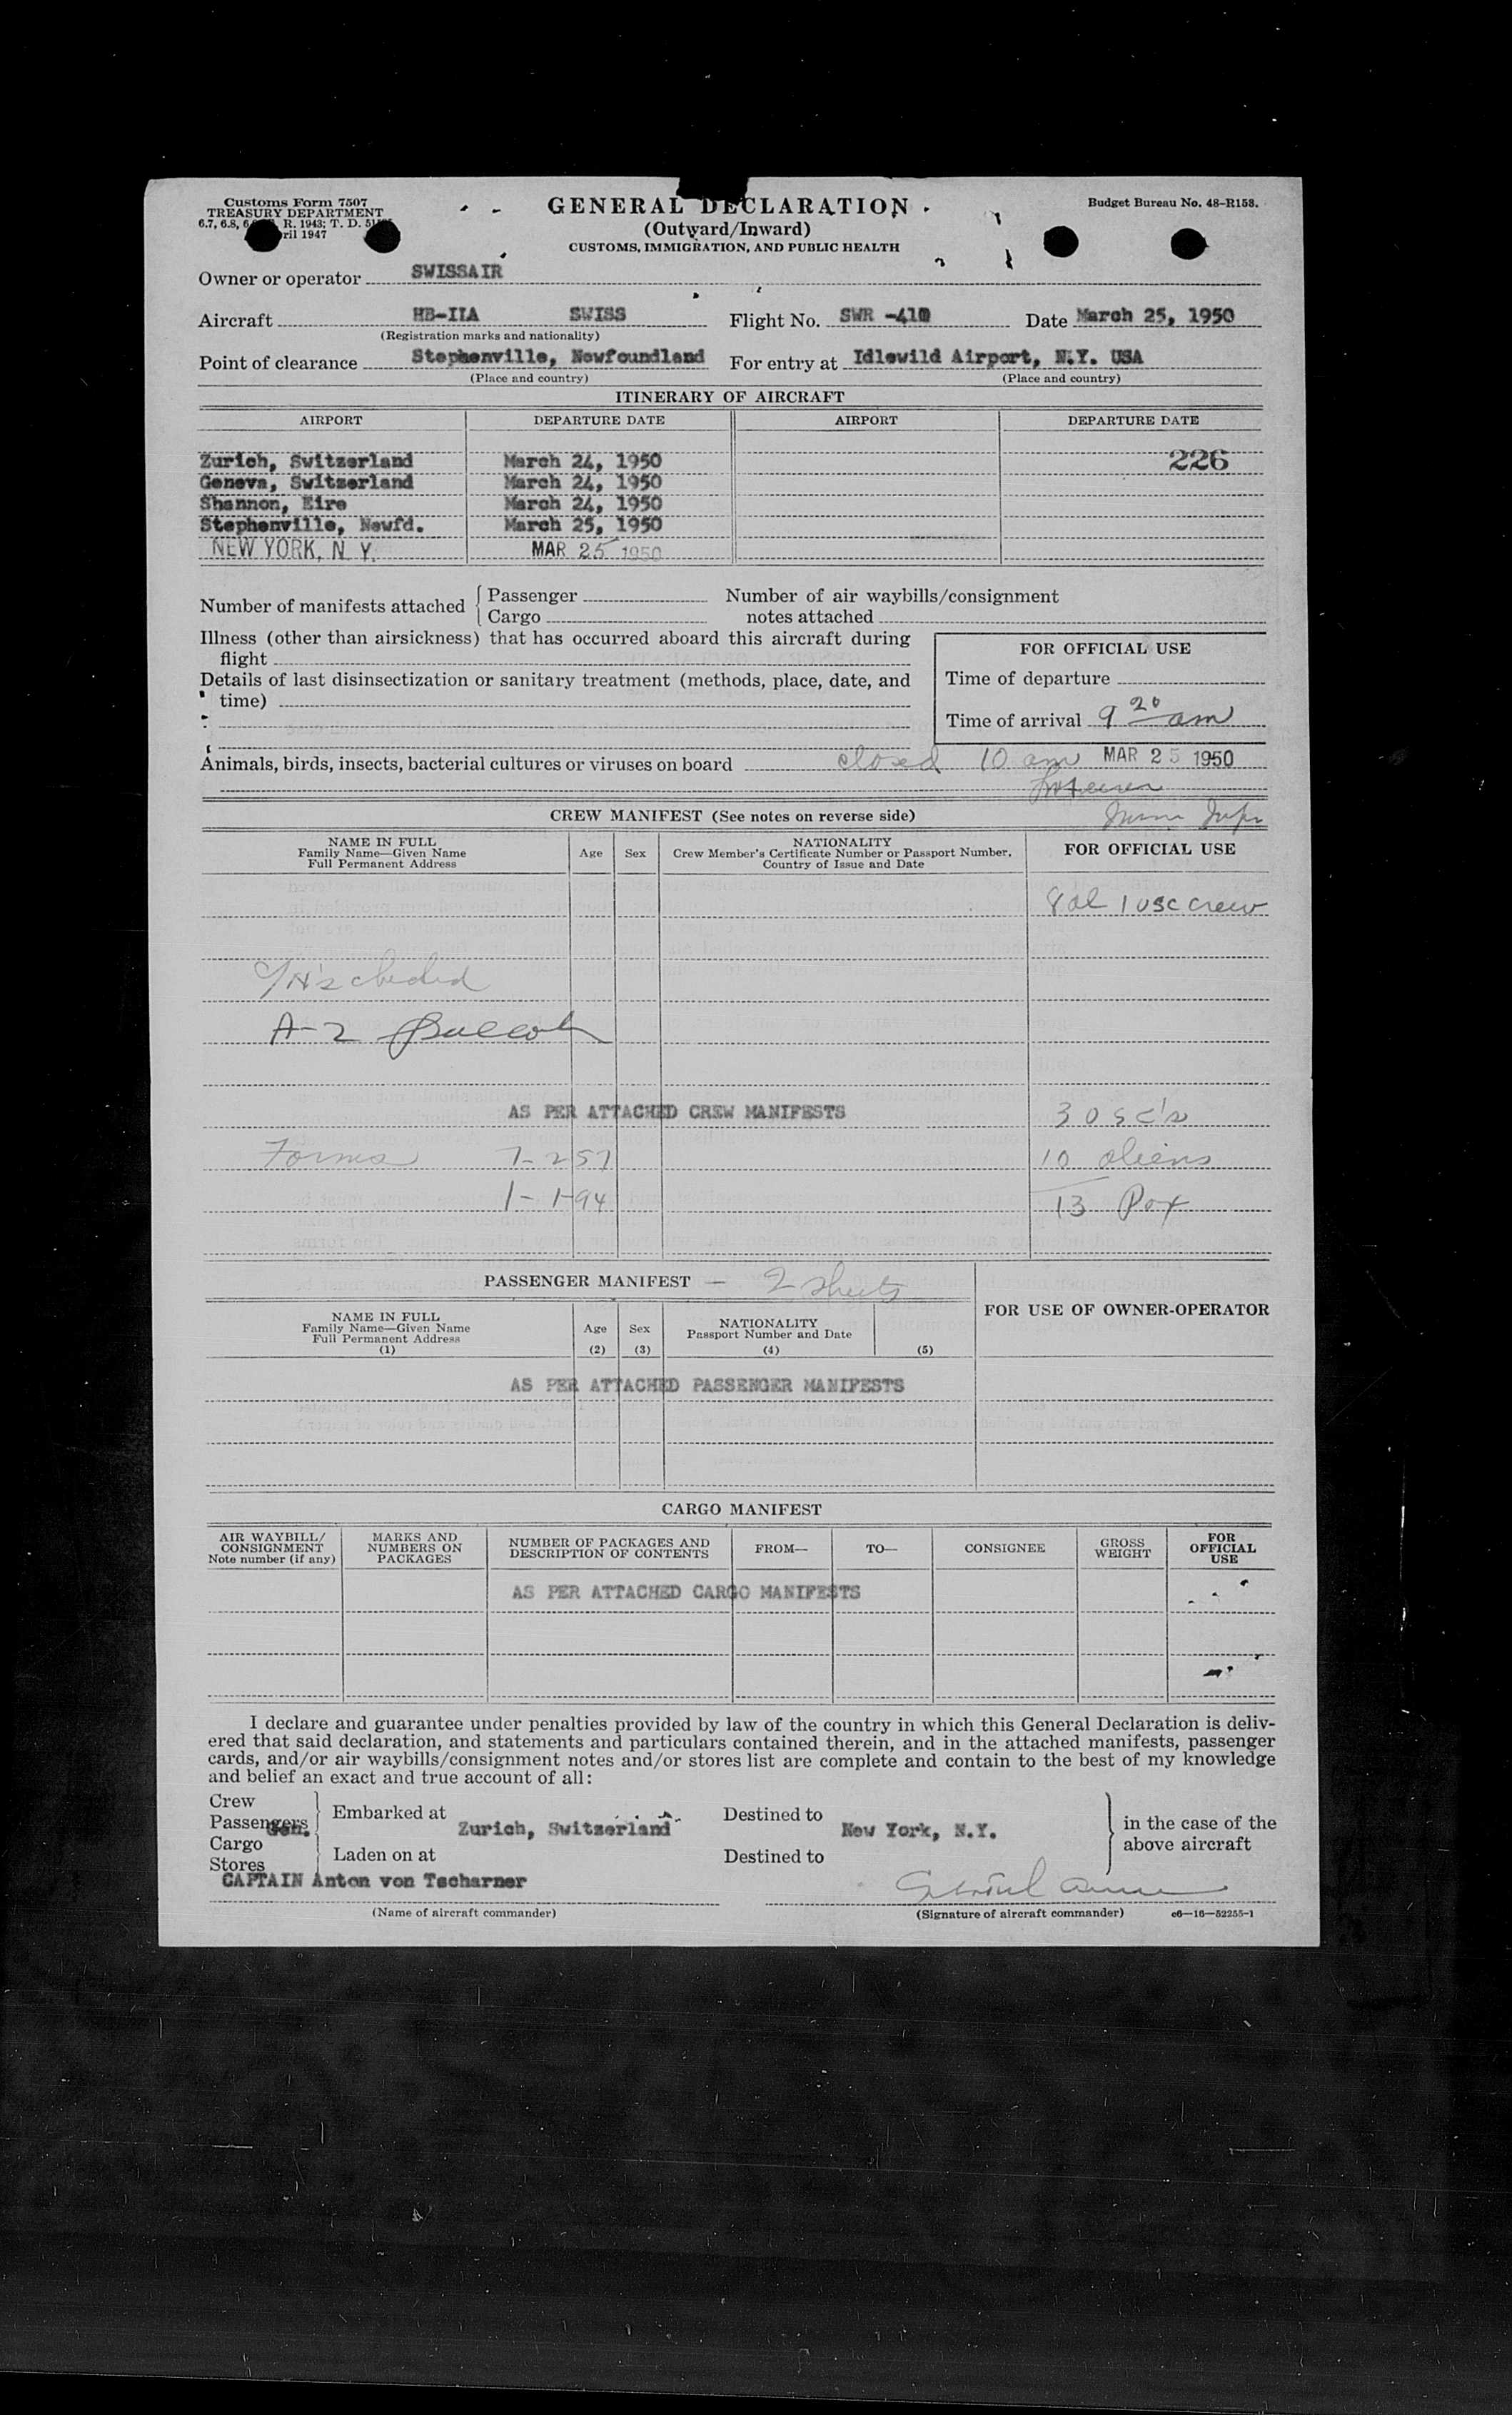 Customs Form 7507
TREASURY DEPARTMENT
6.7, 6.8, R. 1943; T. D.
ril 1947
GENERAL DECLARATION
(Outward/Inward)
CUSTOMS, IMMIGRATION, AND PUBLIC HEALTH
Budget Bureau No. 48-R158.
Owner or operator SWISSAIR
Aircraft HB-IIA SWISS Flight No. SWR Date March 25, 1950
(Registration marks and nationality)
Point of clearance Stephenville, Newfoundland For entry at Idlewild Airport, N.Y. USA
(Place and country) (Place and country)
ITINERARY OF AIRCRAFT
AIRPORT DEPARTURE DATE AIRPORT DEPARTURE DATE
Zurich, Switzerland March 24, 1950 226
Geneva, Switzerland March 24, 1950
Shannon, Eire March 24, 1950
Stephenville, Newfd. March 25, 1950
NEW YORK, N. Y. MAR 25 1950
Number of manifests attached { Passenger
Cargo
Number of air waybills/consignment
notes attached
Illness (other than airsickness) that has occurred aboard this aircraft during
flight
Details of last disinsectization or sanitary treatment (methods, place, date, and
time)
FOR OFFICIAL USE
Time of departure
Time of arrival 9 20 am
Animals, birds, insects, bacterial cultures or viruses on board closed 10 am MAR 25 1950
CREW MANIFEST (See notes on reverse side)
NAME IN FULL
Family Name—Given Name
Full Permanent Address
Age
Sex
NATIONALITY
Crew Member's Certificate Number or Passport Number,
Country of Issue and Date
FOR OFFICIAL USE
8 al 1 usc crew
A-2
AS PER ATTACHED CREW MANIFESTS
3 USC's
Forms 7-257 10 aliens
1-194 13 Pax
PASSENGER MANIFEST — 2 sheets
FOR USE OF OWNER-OPERATOR
NAME IN FULL
Family Name—Given Name
Full Permanent Address
(1)
Age
(2)
Sex
(3)
NATIONALITY
Passport Number and Date
(4)
(5)
AS PER ATTACHED PASSENGER MANIFESTS
CARGO MANIFEST
AIR WAYBILL/
CONSIGNMENT
Note number (if any)
MARKS AND
NUMBERS ON
PACKAGES
NUMBER OF PACKAGES AND
DESCRIPTION OF CONTENTS
FROM—
TO—
CONSIGNEE
GROSS
WEIGHT
FOR
OFFICIAL
USE
AS PER ATTACHED CARGO MANIFESTS
I declare and guarantee under penalties provided by law of the country in which this General Declaration is deliv-
ered that said declaration, and statements and particulars contained therein, and in the attached manifests, passenger
cards, and/or air waybills/consignment notes and/or stores list are complete and contain to the best of my knowledge
and belief an exact and true account of all:
Crew
Passengers
Gen.
Cargo
Stores
Embarked at
Zurich, Switzerland
Laden on at
Destined to
New York, N.Y.
Destined to
in the case of the
above aircraft
CAPTAIN Anton von Tscharner
(Name of aircraft commander) (Signature of aircraft commander) c6—16—52255-1